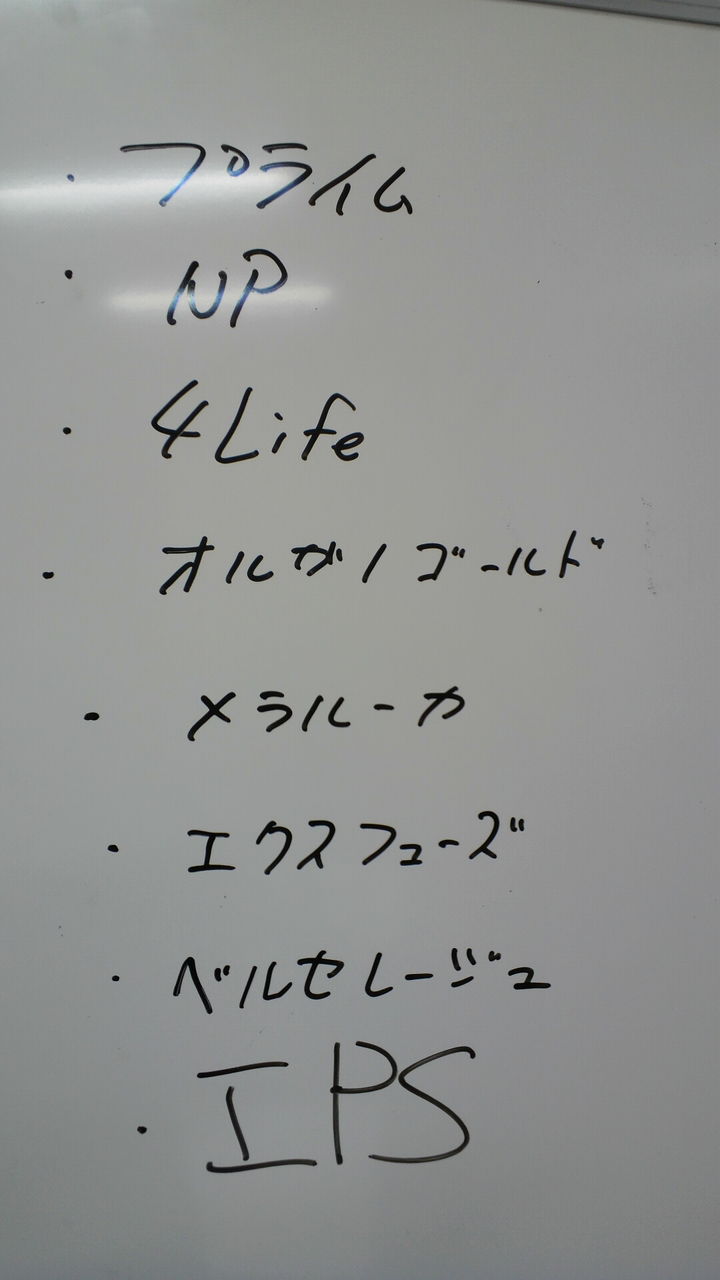 ・プライム
・NP
・4Life
・オルガノゴールド
・メラルーカ
・エクスフューズ
・ベルセレージュ
・IPS